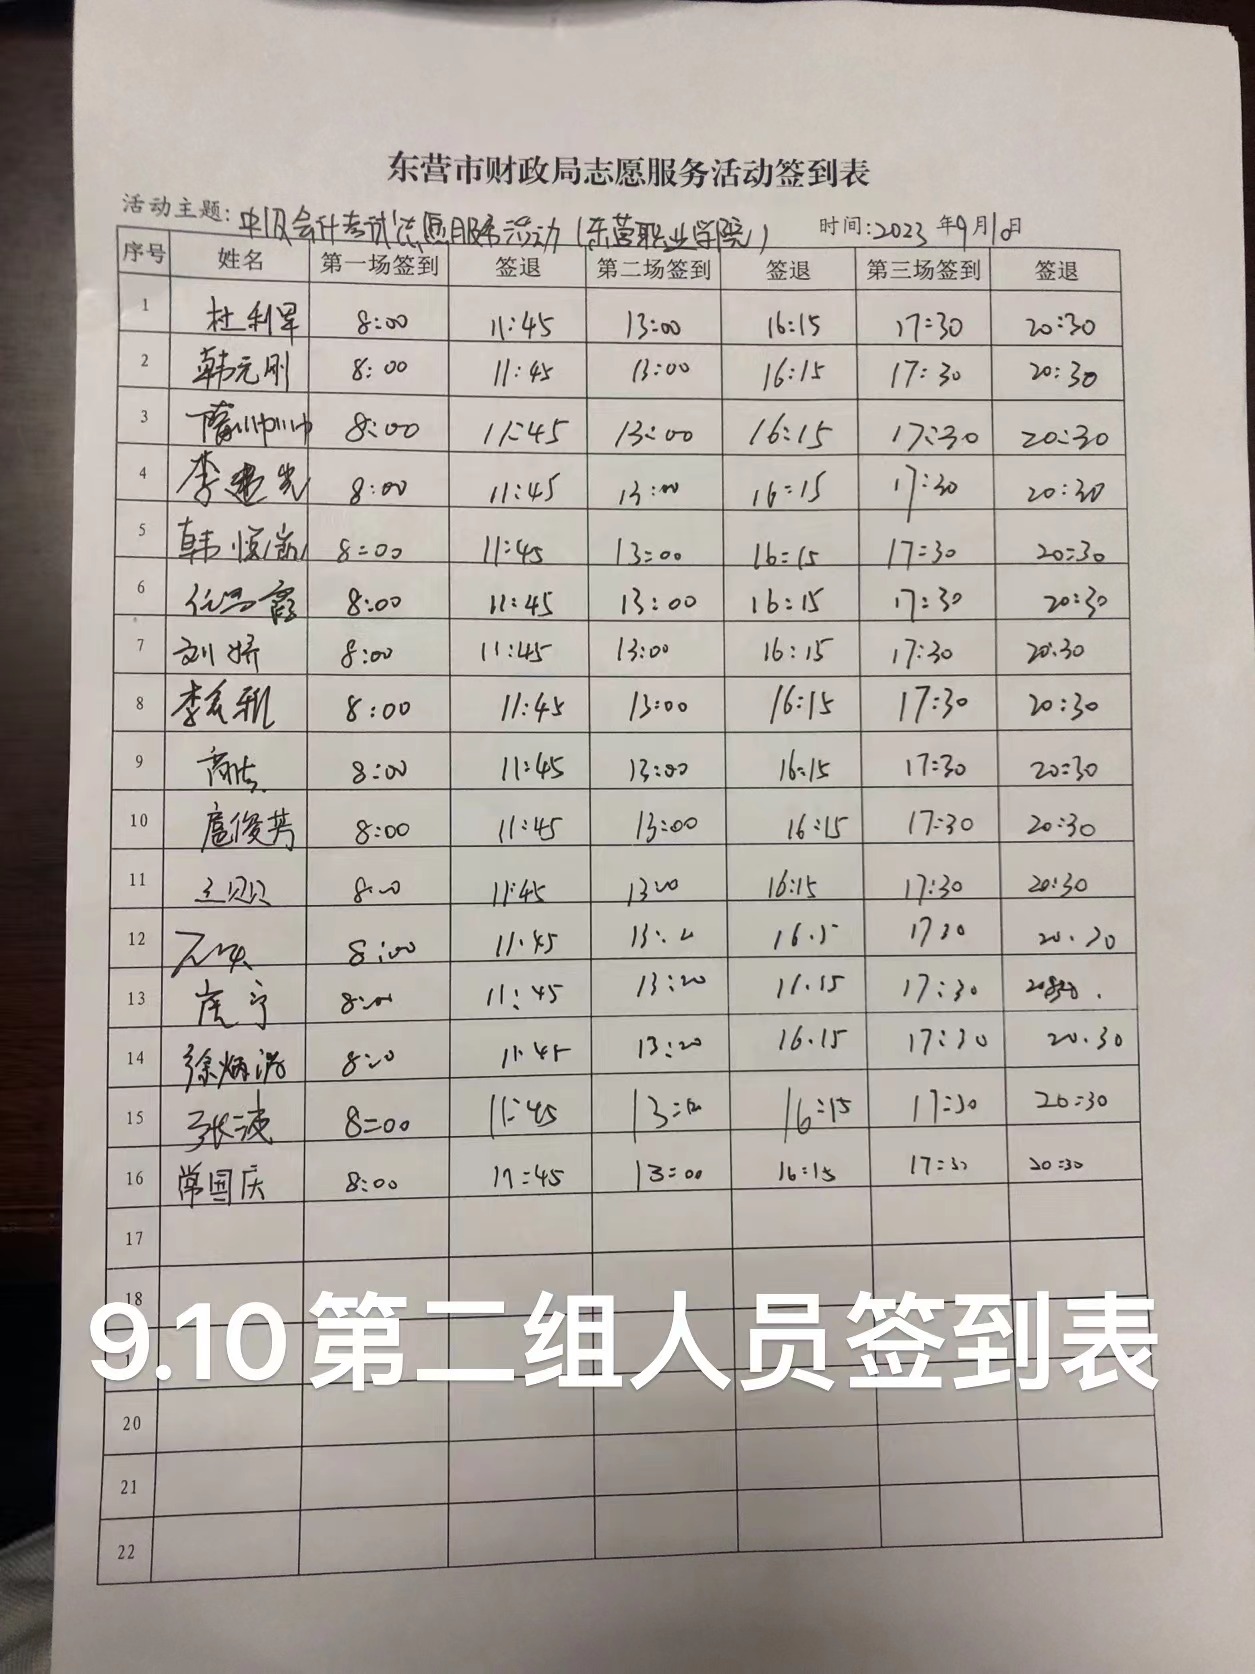 东营市财政局志愿服务活动签到表
活动主题:中级会计考试志愿服务活动(东营职业学院) 时间:2023年9月10日
序号 姓名 第一场签到 签退 第二场签到 签退 第三场签到 签退
1 杜利军 8:00 11:45 13:00 16:15 17:30 20:30
2 韩元刚 8:00 11:45 13:00 16:15 17:30 20:30
3 8:00 11:45 13:00 16:15 17:30 20:30
4 李建光 8:00 11:45 13:00 16:15 17:30 20:30
5 韩 8:00 11:45 13:00 16:15 17:30 20:30
6 8:00 11:45 13:00 16:15 17:30 20:30
7 刘娇 8:00 11:45 13:00 16:15 17:30 20:30
8 李 8:00 11:45 13:00 16:15 17:30 20:30
9 8:00 11:45 13:00 16:15 17:30 20:30
10 扈俊芳 8:00 11:45 13:00 16:15 17:30 20:30
11 8:00 11:45 13:00 16:15 17:30 20:30
12 8:00 11:45 16.15 1730 20.30
13 11:45 13:20 11.15 17:30
14 徐炳 11:45 13:20 16.15 17:30 20.30
15 张波 8:00 11:45 16:15 17:30 20:30
16 常国庆 8:00 11:45 13:00 16:15 17:30 20:30
17
18
9.10第二组人员签到表
20
21
22